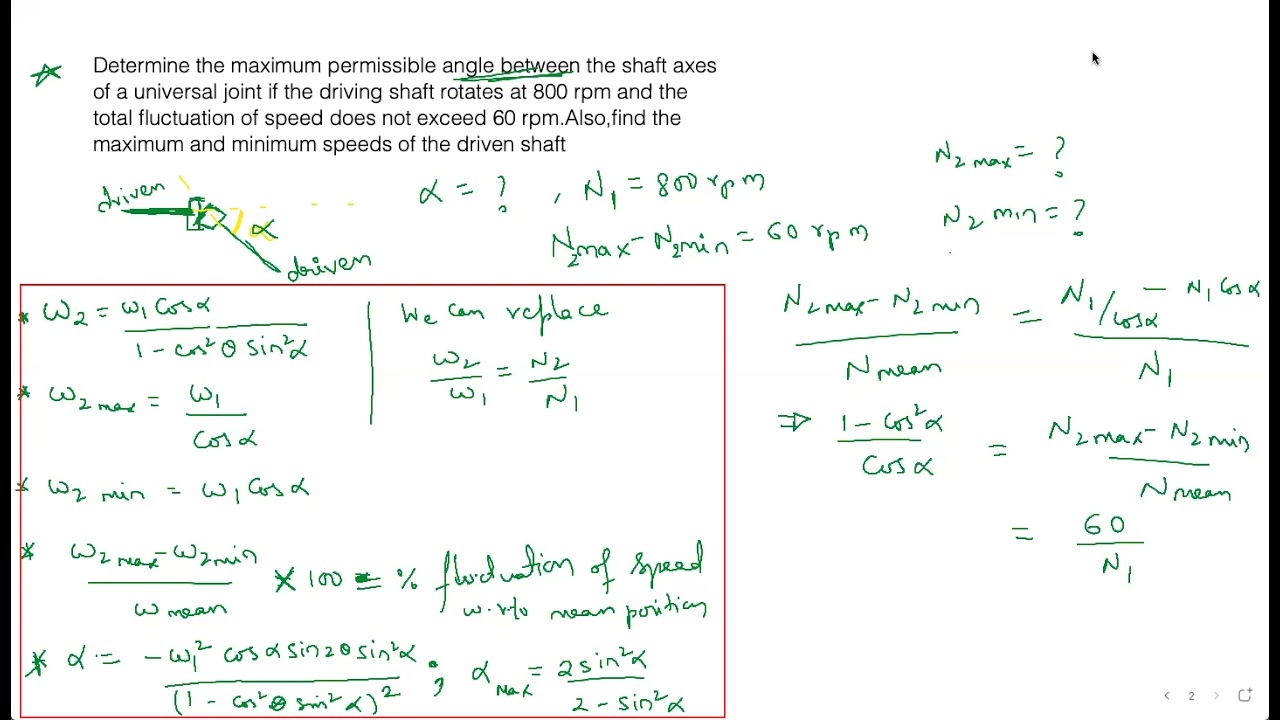 Determine the maximum permissible angle between the shaft axes
of a universal joint if the driving shaft rotates at 800 rpm and the
total fluctuation of speed does not exceed 60 rpm.Also,find the
maximum and minimum speeds of the driven shaft
N2 max = ?
N2 min = ?
driven
α
driven
α = ? , N1 = 800 rpm
N2max - N2min = 60 rpm
* ω2 = ω1 cosα / 1 - cos²θ sin²α
* ω2 max = ω1 / cosα
* ω2 min = ω1 cosα
We can replace
ω2 / ω1 = N2 / N1
* ω2max - ω2min / ω mean × 100 = % fluctuation of speed
w.r.to mean position
* α = -ω1² cosα sin2θ sin²α / (1 - cos²θ sin²α)² ; α max = 2sin²α / 2 - sin²α
N2max - N2min / Nmean = N1/cosα - N1 cosα / N1
⇒ 1 - cos²α / cosα = N2max - N2min / Nmean
= 60 / N1
2